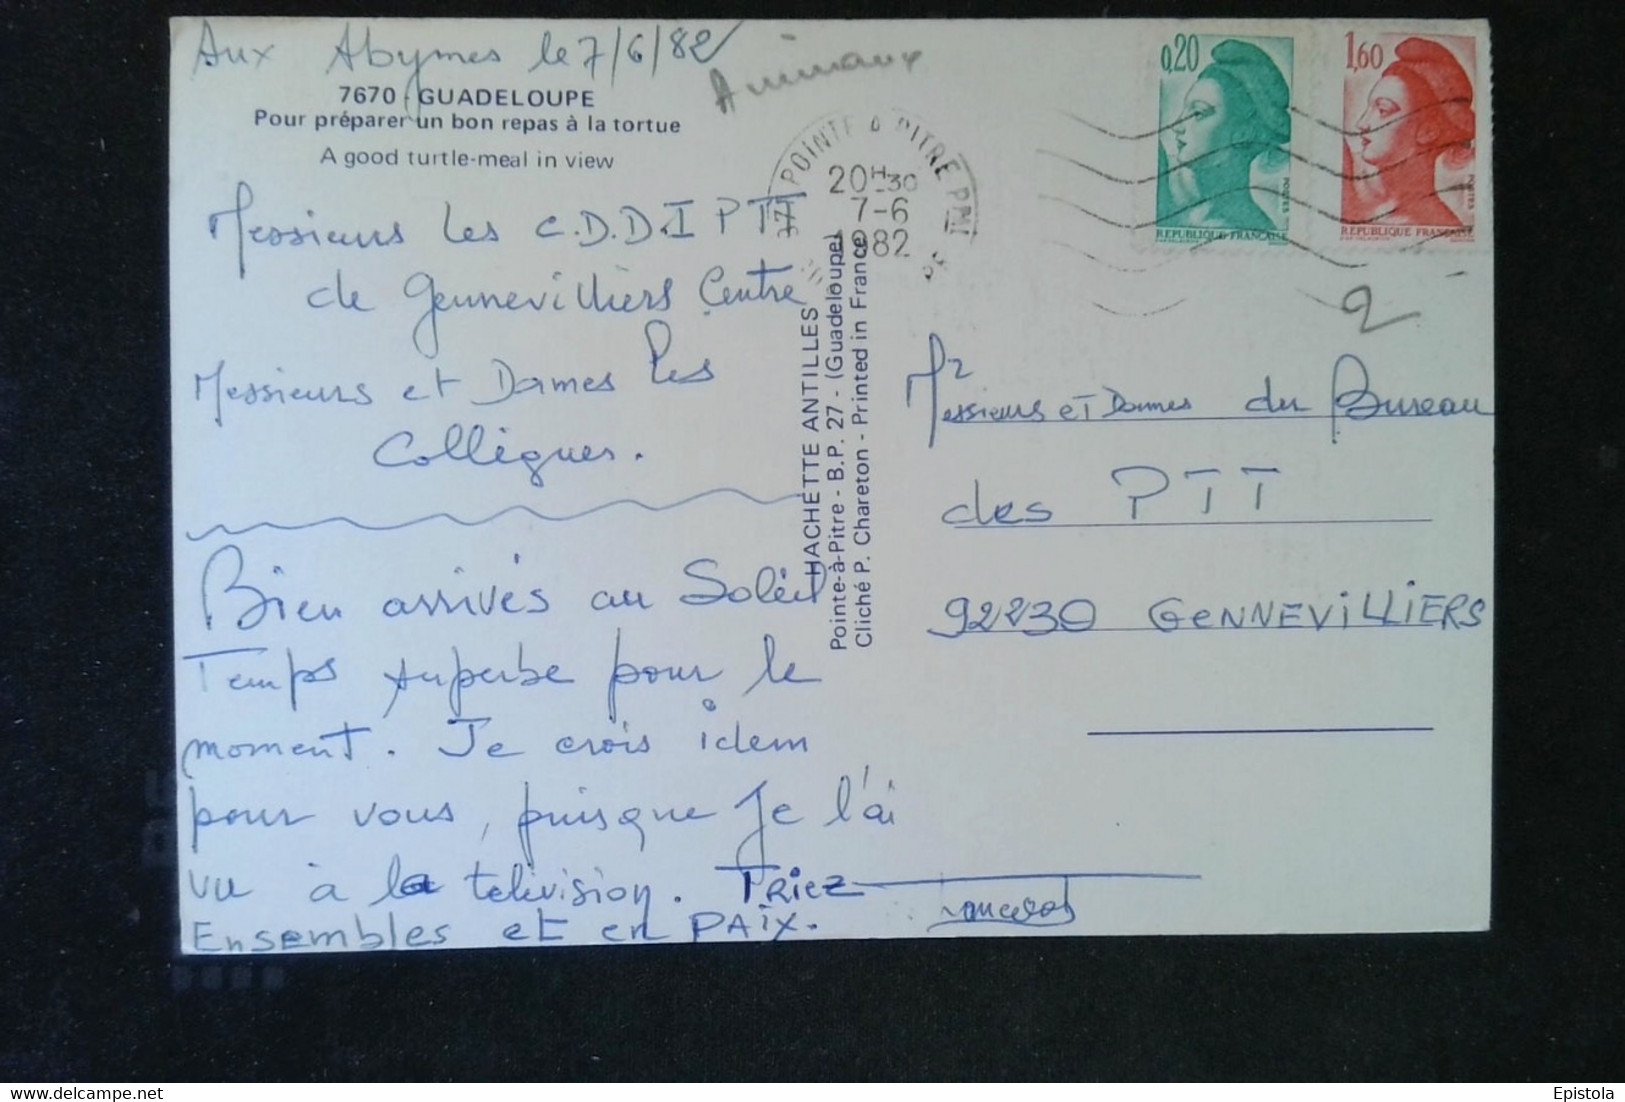 Aux Abymes le 7/6/82
Animaux
7670 - GUADELOUPE
Pour préparer un bon repas à la tortue
A good turtle-meal in view
Messieurs les C.D.D.I PTT
de Gennevilliers Centre
Messieurs et Dames les
Collègues.
Bien arrivés au Soleil
Temps superbe pour le
moment. Je crois idem
pour vous, puisque Je l'ai
vu à la télévision. TRiEZ
Ensembles et en PAix.
HACHETTE ANTILLES
Pointe-à-Pitre - B.P. 27 - (Guadeloupe)
Cliché P. Chareton - Printed in France
POINTE A PITRE PPAL
20H30
7-6
1982
0,20
POSTES
REPUBLIQUE FRANÇAISE
1,60
POSTES
REPUBLIQUE FRANÇAISE
2
Messieurs et Dames du Bureau
des PTT
92230 GENNEVILLIERS
delcampe.net
Epistola